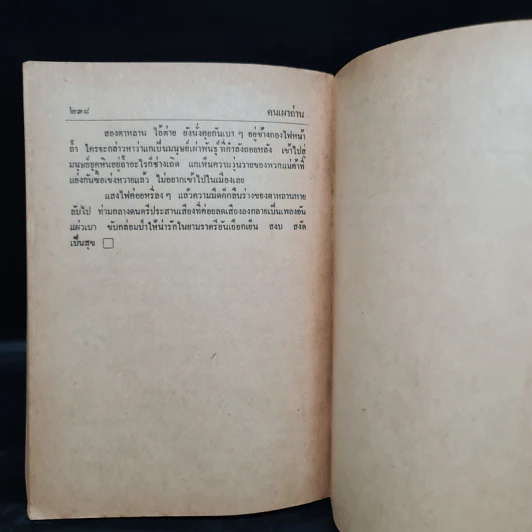 ๒๓๘ คนเผาถ่าน
สองตาหลาน ไอ้ด่าย ยังนั่งคุยกันเบา ๆ อยู่ข้างกองไฟหน้า
ถ้ำ ใครจะกล่าวหาว่าแกเป็นมนุษย์เผ่าพันธุ์ที่กำลังถอยหลัง เข้าไปสู่
มนุษย์ยุคหินอยู่ถ้ำอะไรก็ช่างเถิด แกเห็นความวุ่นวายของพวกแม่ค้าที่
แย่งกันซื้อเข่งหวายแล้ว ไม่อยากเข้าไปในเมืองเลย
แสงไฟค่อยหรี่ลง ๆ แล้วความมืดก็กลืนร่างของตาหลานหาย
ลับไป ท่ามกลางดนตรีประสานเสียงที่ค่อยลดเสียงลงกลายเป็นเพลงอัน
แผ่วเบา ขับกล่อมป่าให้น่ารักในยามราตรีอันเยือกเย็น สงบ สงัด
เป็นสุข